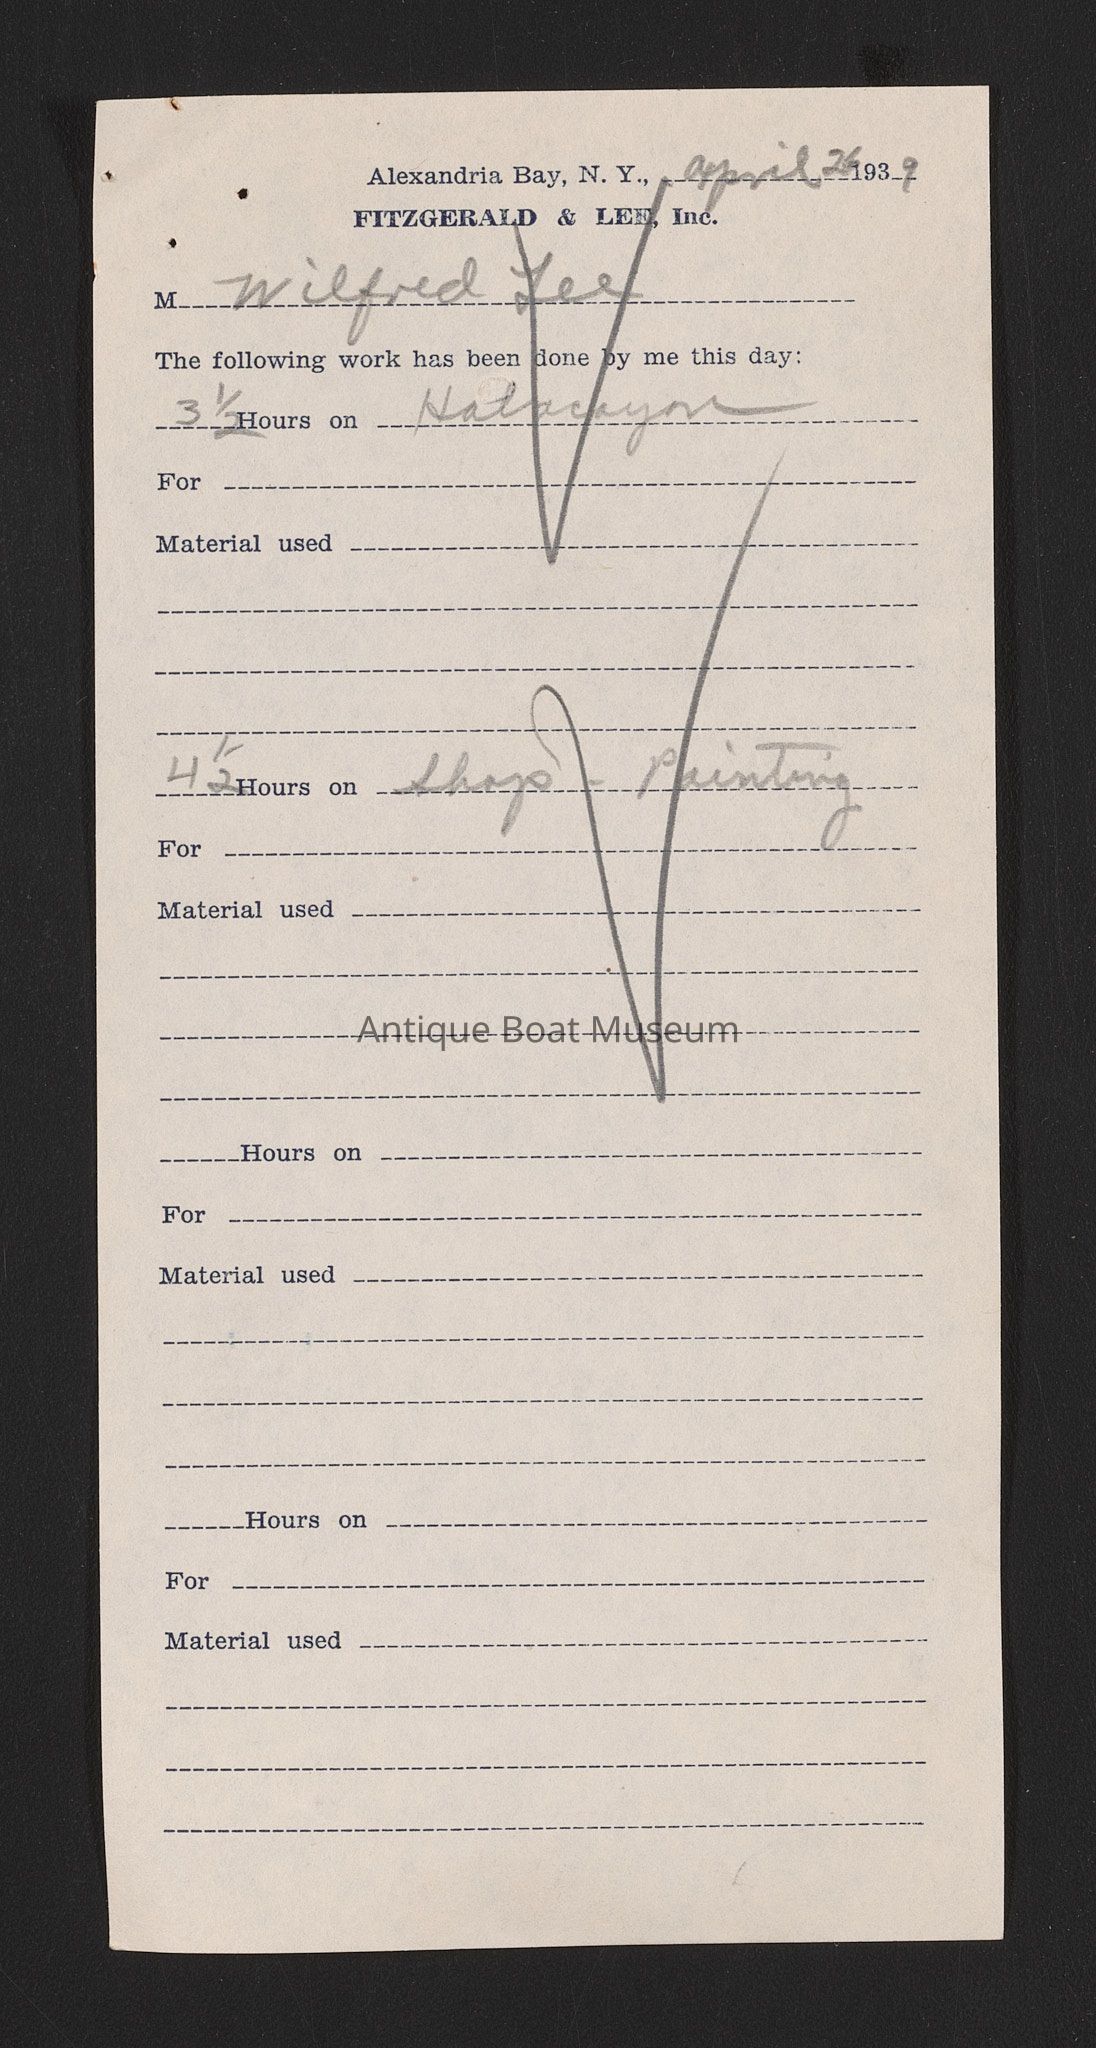 Alexandria Bay, N. Y., April 26 1939
FITZGERALD & LEE, Inc.
M Wilfred Lee
The following work has been done by me this day:
3 1/2 Hours on Halacayon
For
Material used
4 1/2 Hours on Shop - Painting
For
Material used
Antique Boat Museum
Hours on
For
Material used
Hours on
For
Material used